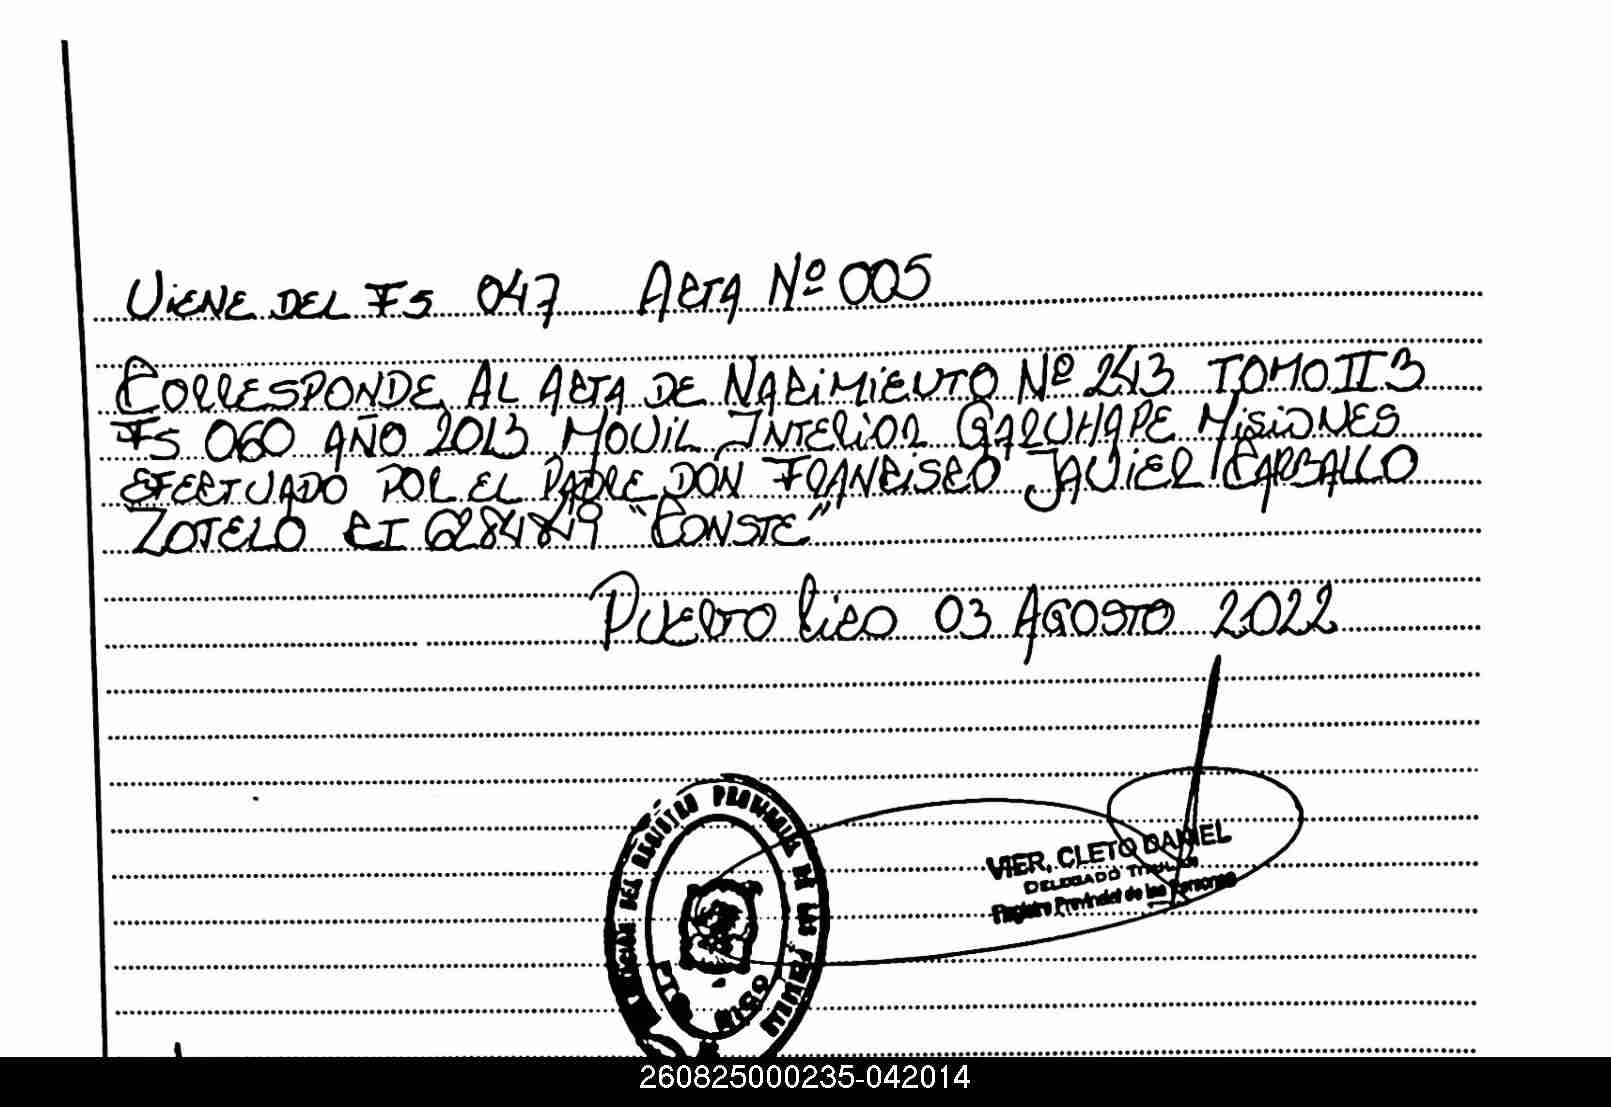 VIENE DEL FS 047 ACTA Nº 005
CORRESPONDE AL ACTA DE NACIMIENTO Nº 243 TOMO II 3
FS 060 AÑO 2013 MOVIL INTERIOR GARUHAPE MISIONES
EFECTUADO POR EL PADRE DON FRANCISCO JAVIER CARBALLO
ZOTELO CI 6284849 "CONSTE"
PUERTO RICO 03 AGOSTO 2022
VIER, CLETO DANIEL
DELEGADO TITULAR
Registro Provincial de las Personas
DEL REGISTRO PROVINCIAL DE LAS PERSONAS
RICO
260825000235-042014